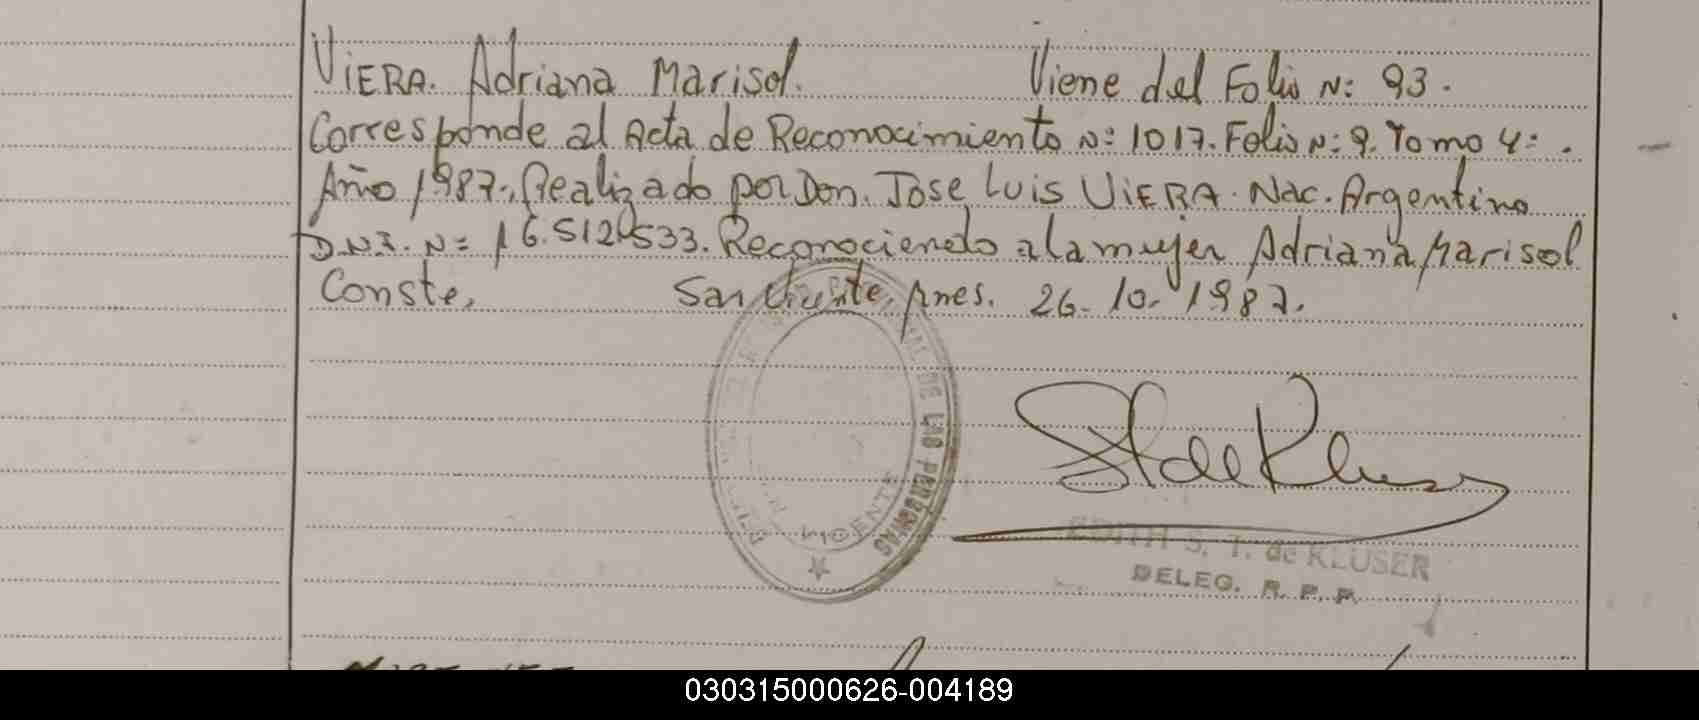 VIERA. Adriana Marisol. Viene del Folio N: 93.
Corresponde al Acta de Reconocimiento N: 1017. Folio N: 9. Tomo 4: .
Año 1987., Realizado por Don. Jose Luis VIERA. Nac. Argentino
D.N.I. N= 16.512.533. Reconociendo a la mujer Adriana Marisol
Conste, San Vicente, 26-10-1987.
DE LAS PERSONAS
VICENTE
EDITH S. T. de KLUSER
DELEG. R. P. P.
030315000626-004189